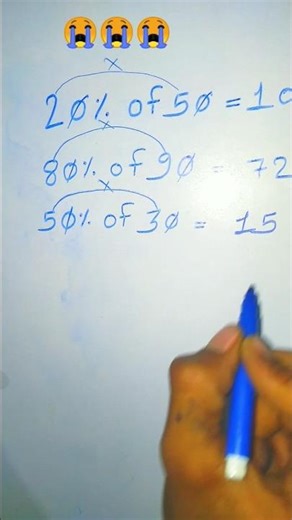 😭😭😭
×
20% of 50 = 10
×
80% of 90 = 72
×
50% of 30 = 15